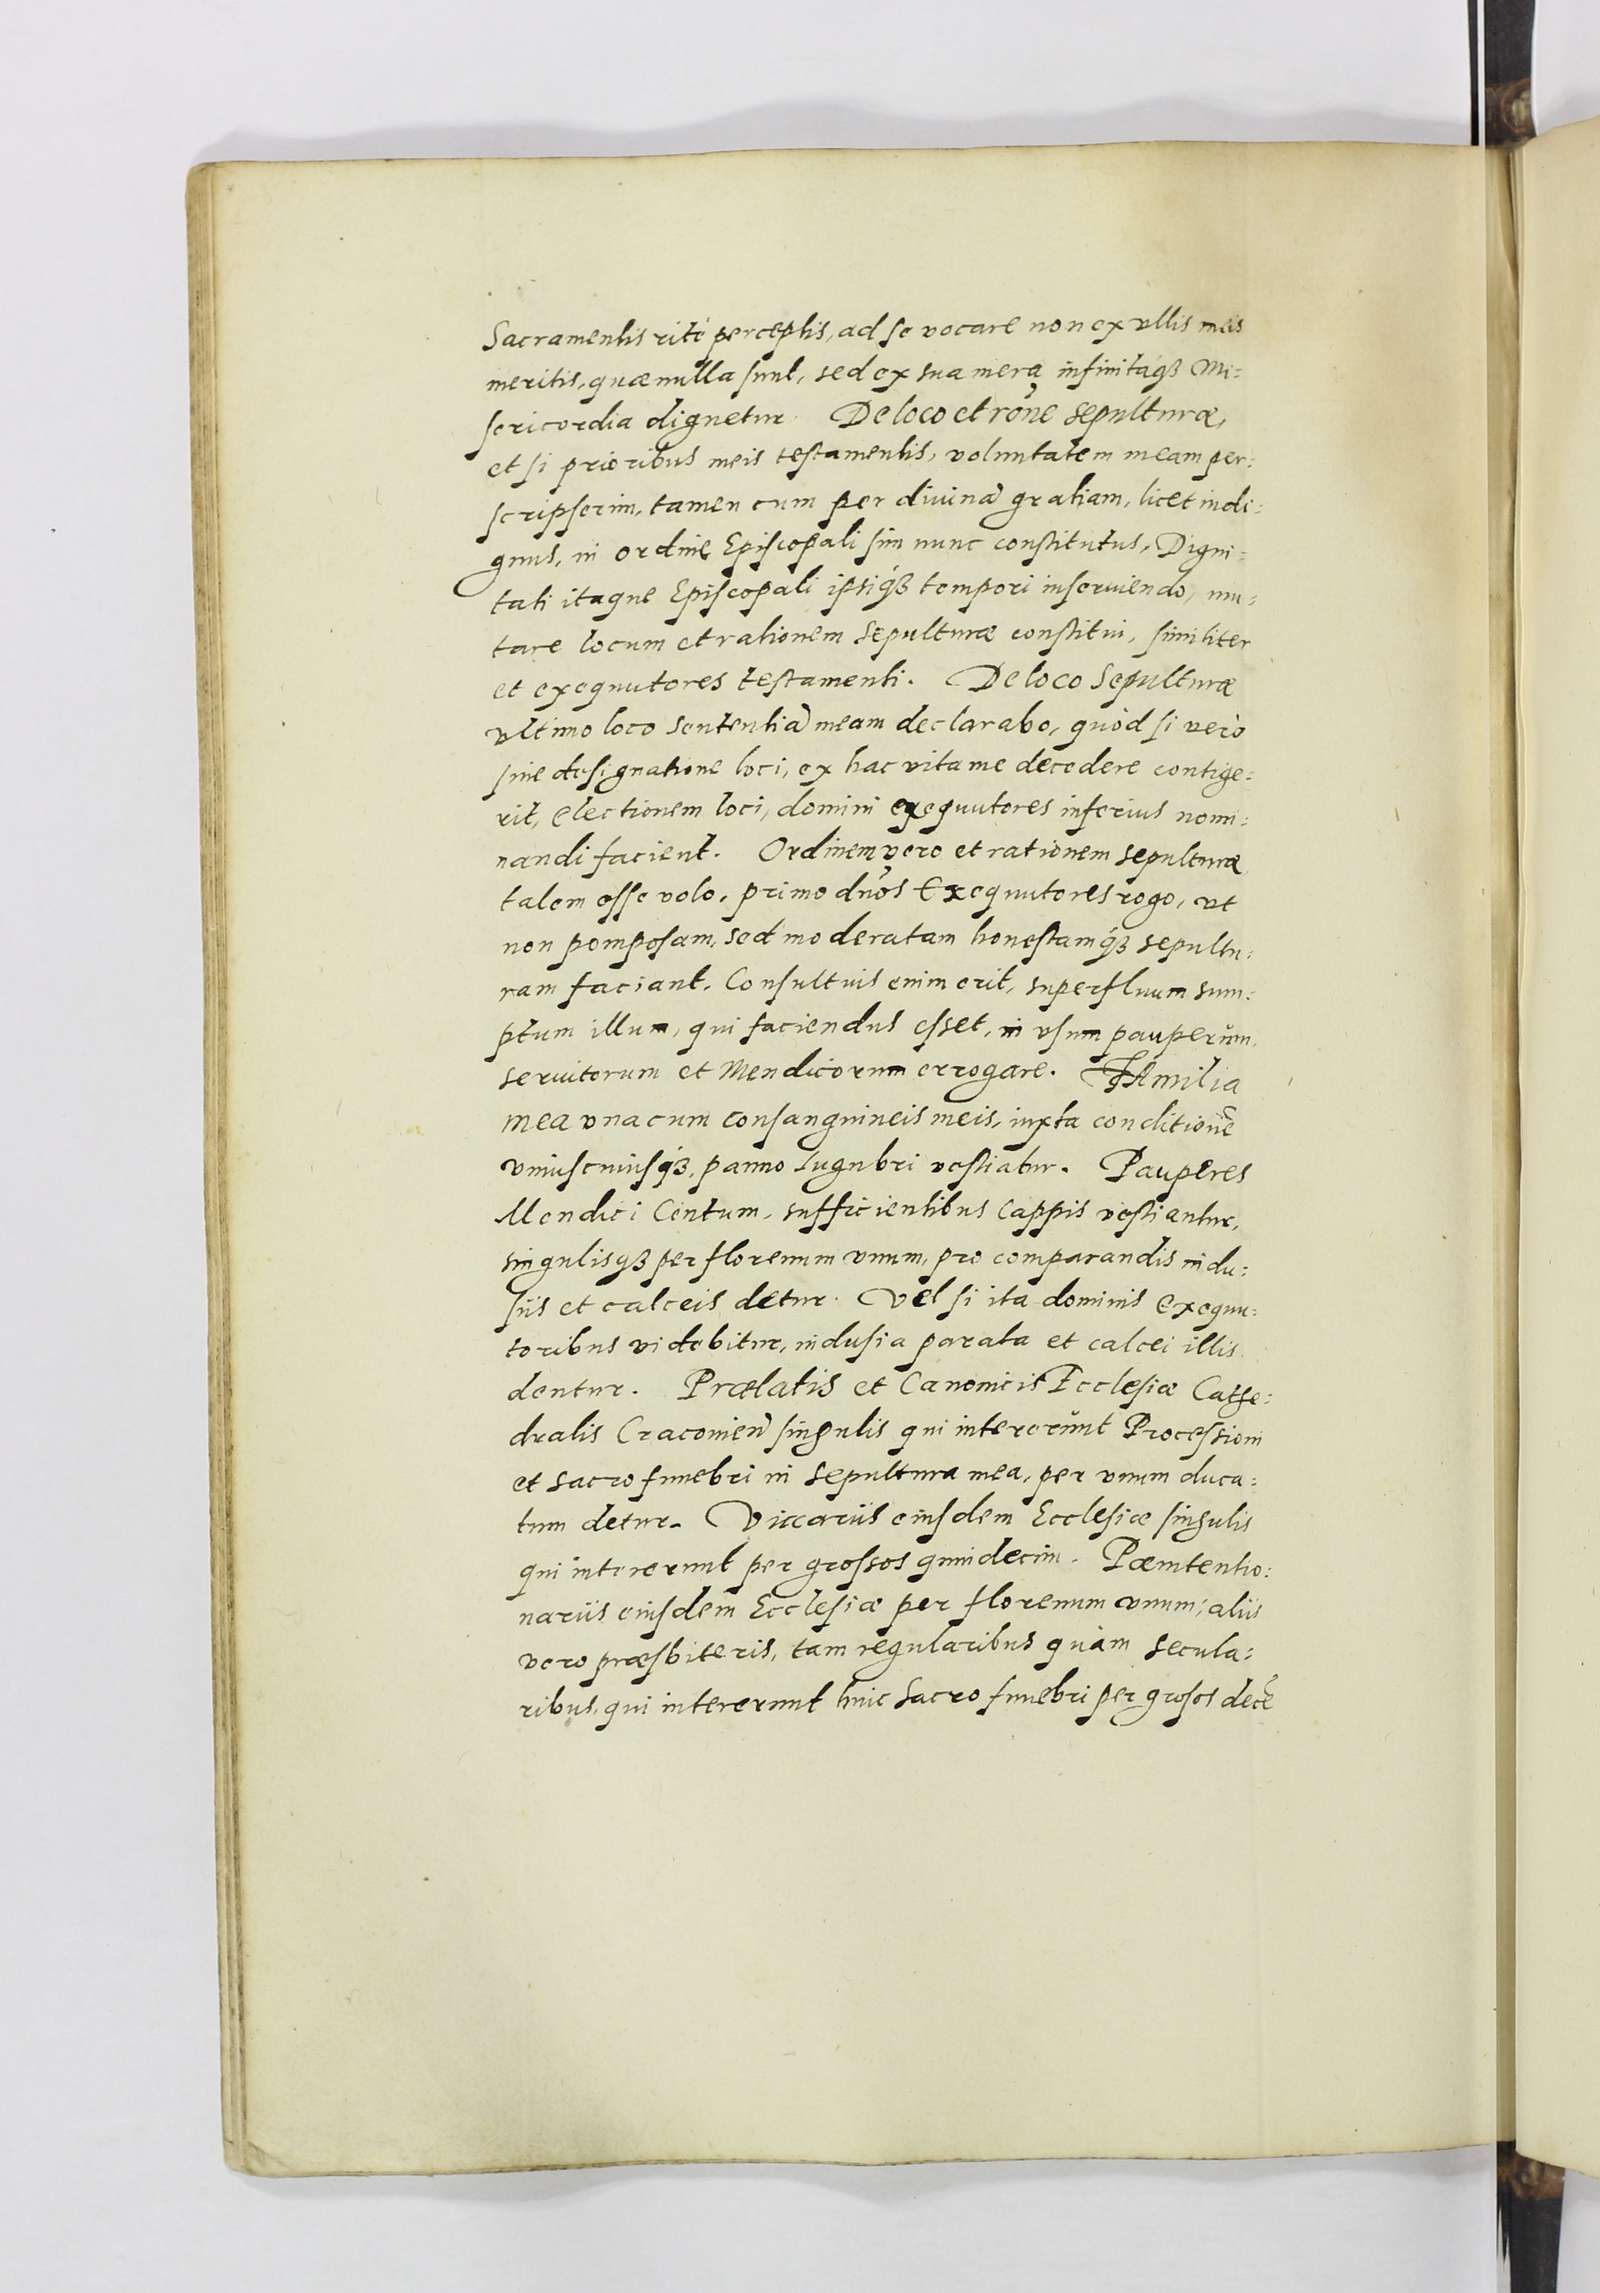 Sacramentis ritè perceptis, ad se vocare non ex vllis meis
meritis, quæ nulla sunt, sed ex sua mera infinitáqꝫ Mi:
sericordia dignetur. De loco et rõne sepulturæ,
et si prioribus meis testamentis, voluntatem meam per:
scripserim, tamen cum per diuinã gratiam, licet indi:
gnus, in ordine Episcopali sim nunc constitutus, Digni:
tati itaque Episcopali ipsiqꝫ tempori inseruiendo, mu:
tare locum et rationem sepulturæ constitui, similiter
et exequutores testamenti. De loco Sepulturæ
vltimo loco sententiã meam declarabo, quòd si verò
sine designatione loci, ex hac vita me decedere contige:
rit, electionem loci, domini exequutores inferius nomi:
nandi facient. Ordinem vero et rationem sepulturæ
talem esse volo, primo dños Exequutores rogo, vt
non pomposam, sed moderatam honestamqꝫ sepultu:
ram faciant. Consultuis enim erit, superfluum sum:
ptum illum, qui faciendus esset, in vsum pauperum,
seruitorum et Mendicorum errogare. FAmilia
mea vna cum consanguineis meis, iuxta conditionẽ
vniuscuiusqꝫ, panno lugubri vestiatur. Pauperes
Mendici Centum, sufficientibus Cappis vestiantur,
singulisqꝫ per florenum vnum, pro comparandis indu:
siis et calceis detur. Vel si ita dominis exequu:
toribus videbitur, indusia parata et calcei illis
dentur. Prælatis et Canonicis Ecclesiæ Cathe:
dralis Cracouien̄ singulis qui intererũnt Processioni
et sacro funebri in sepultura mea, per vnum duca:
tum detur. Viccariis eiusdem Ecclesiæ singulis
qui intererunt per grossos quindecim. Pœnitentio:
nariis eiusdem Ecclesiæ per florenum vnum; aliis
vero præsbiteris, tam regularibus quàm secula:
ribus, qui intererunt huic sacro funebri per grosos decẽ